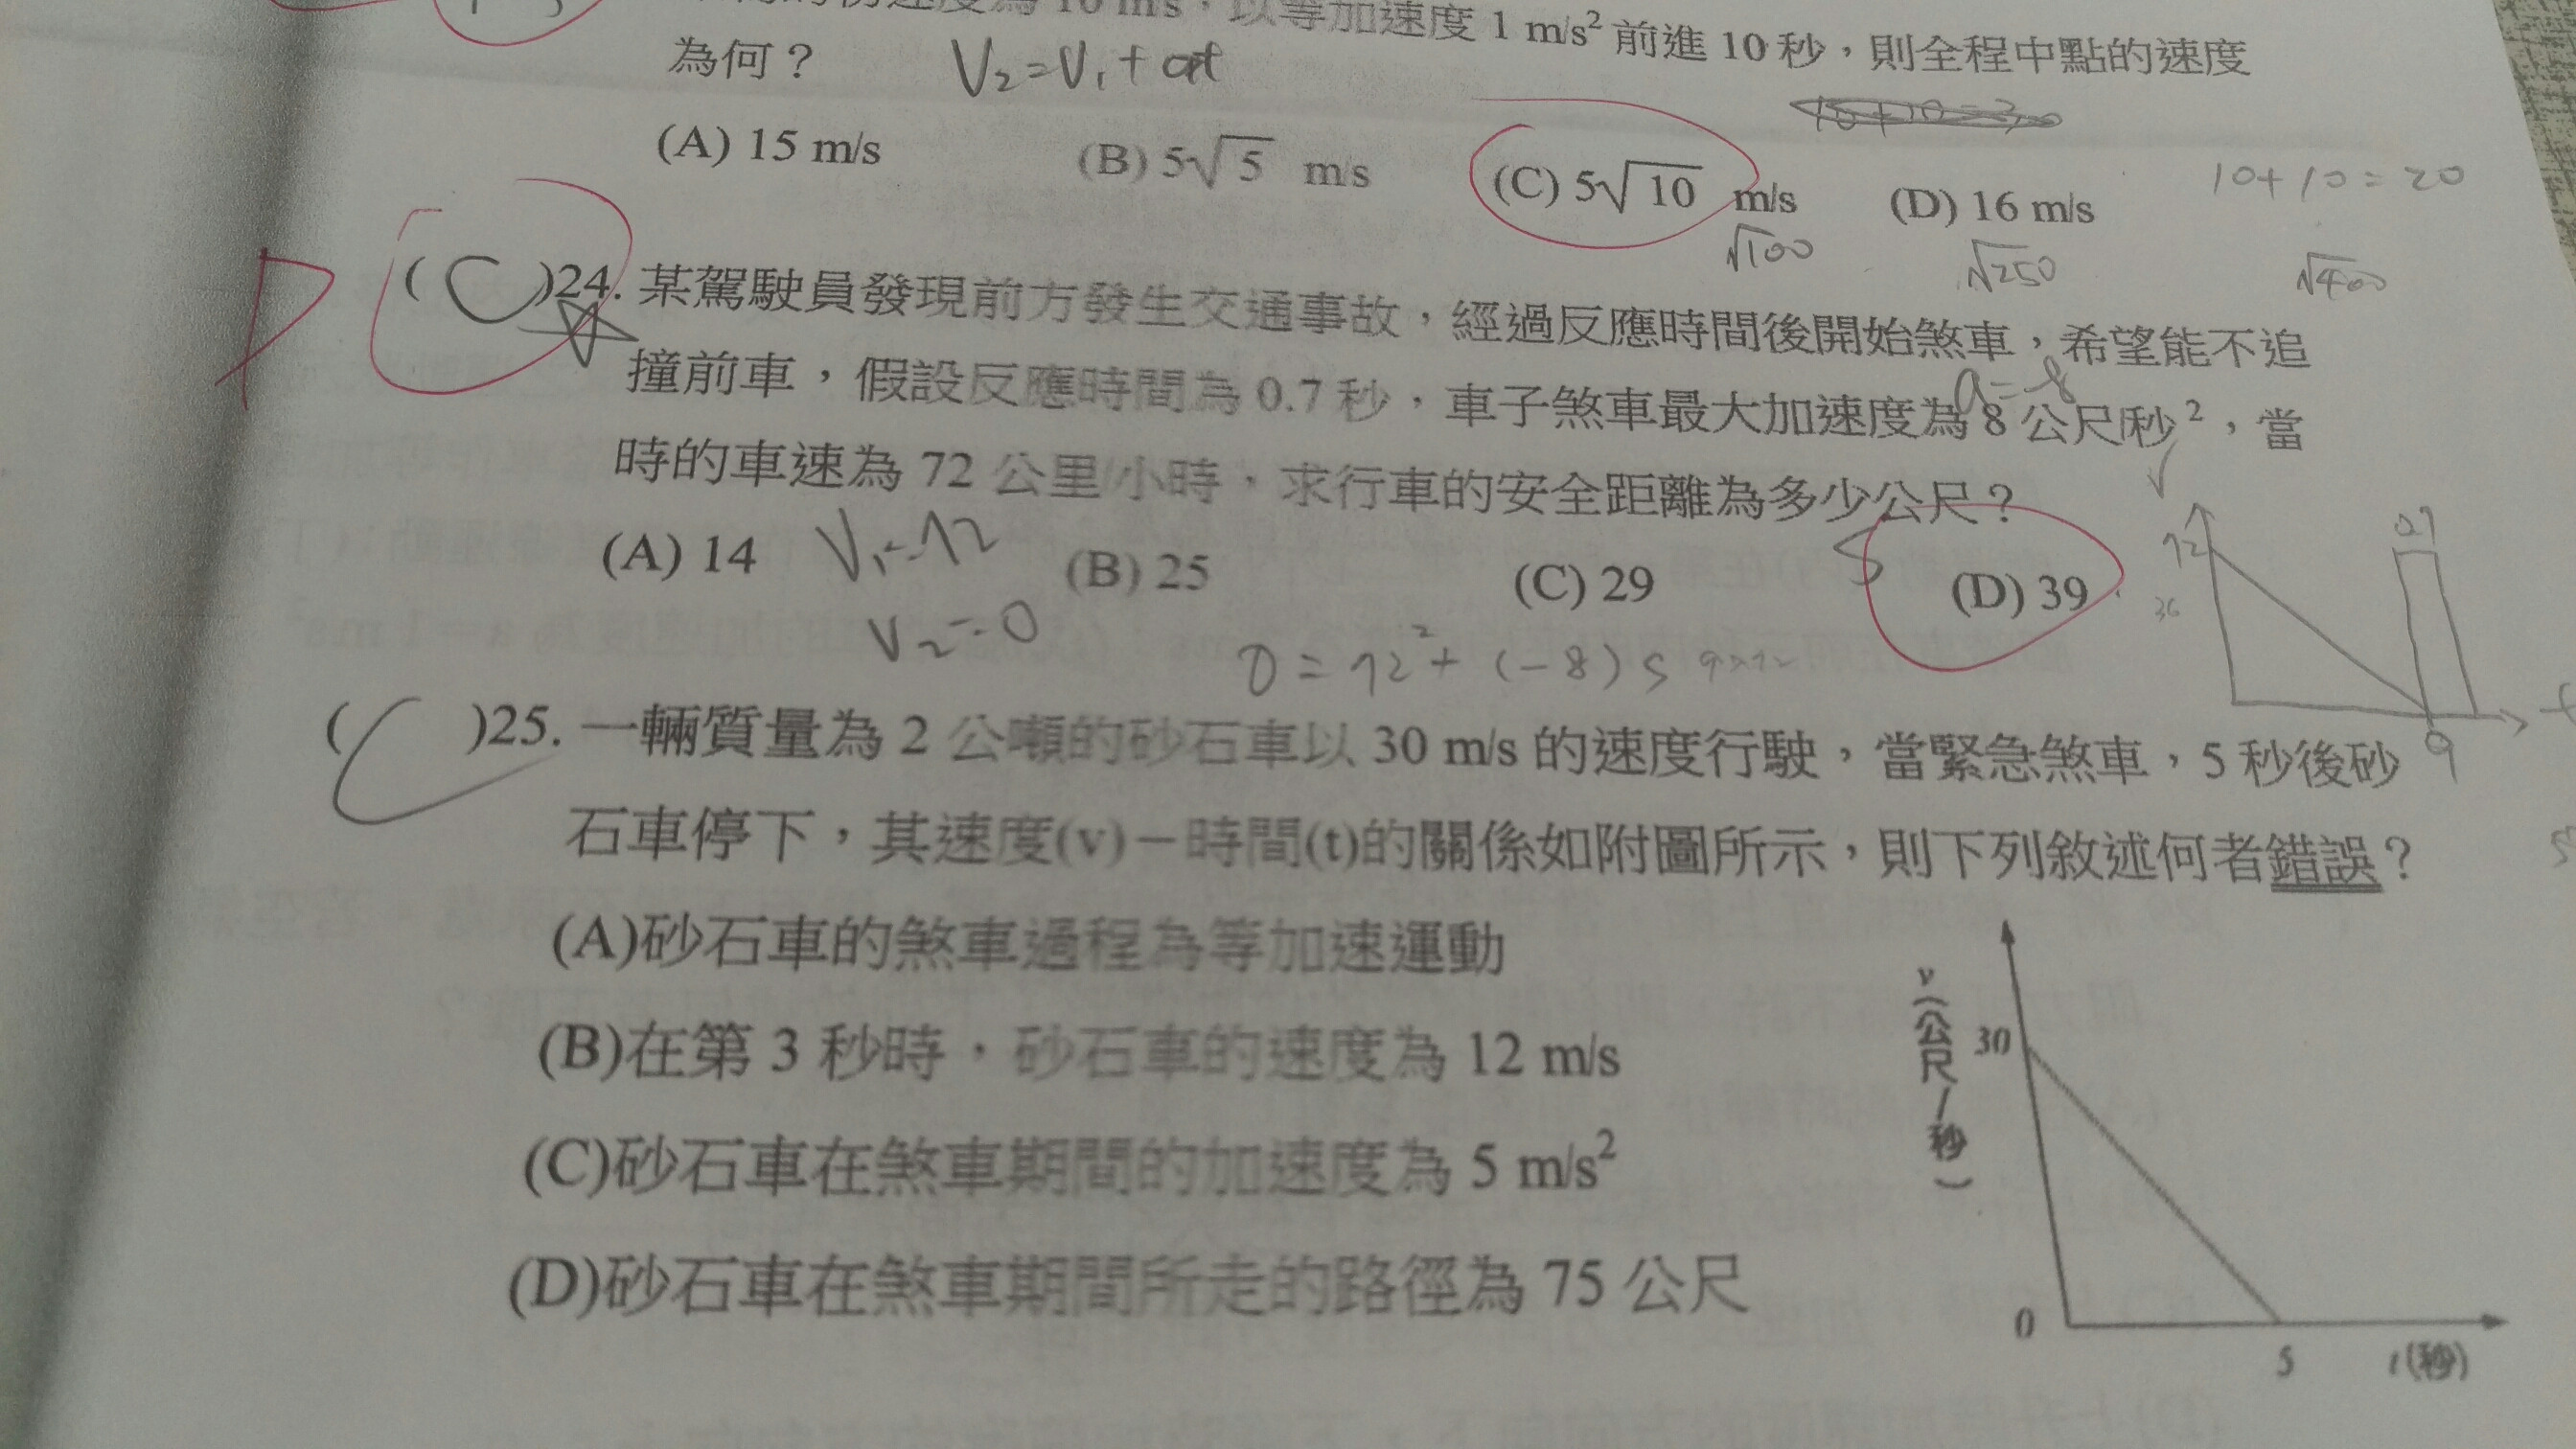 10 m/s,以等加速度 1 m/s² 前進 10 秒,則全程中點的速度
為何? V₂=V₁+at
(A) 15 m/s (B) 5√5 m/s (C) 5√10 m/s (D) 16 m/s
10+10=20
√100 √250 √400
(C)24. 某駕駛員發現前方發生交通事故,經過反應時間後開始煞車,希望能不追
撞前車,假設反應時間為 0.7 秒,車子煞車最大加速度為 8 公尺/秒²,當
a=-8
時的車速為 72 公里/小時,求行車的安全距離為多少公尺?
(A) 14 (B) 25 (C) 29 (D) 39
V₁=72
V₂=0
0=72²+(-8)S 9×72
72
36
0.7
9
t
( )25. 一輛質量為 2 公噸的砂石車以 30 m/s 的速度行駛,當緊急煞車,5 秒後砂
石車停下,其速度(v)-時間(t)的關係如附圖所示,則下列敘述何者錯誤?
(A)砂石車的煞車過程為等加速運動
(B)在第 3 秒時,砂石車的速度為 12 m/s
(C)砂石車在煞車期間的加速度為 5 m/s²
(D)砂石車在煞車期間所走的路徑為 75 公尺
v(公尺/秒)
30
0
5 t(秒)